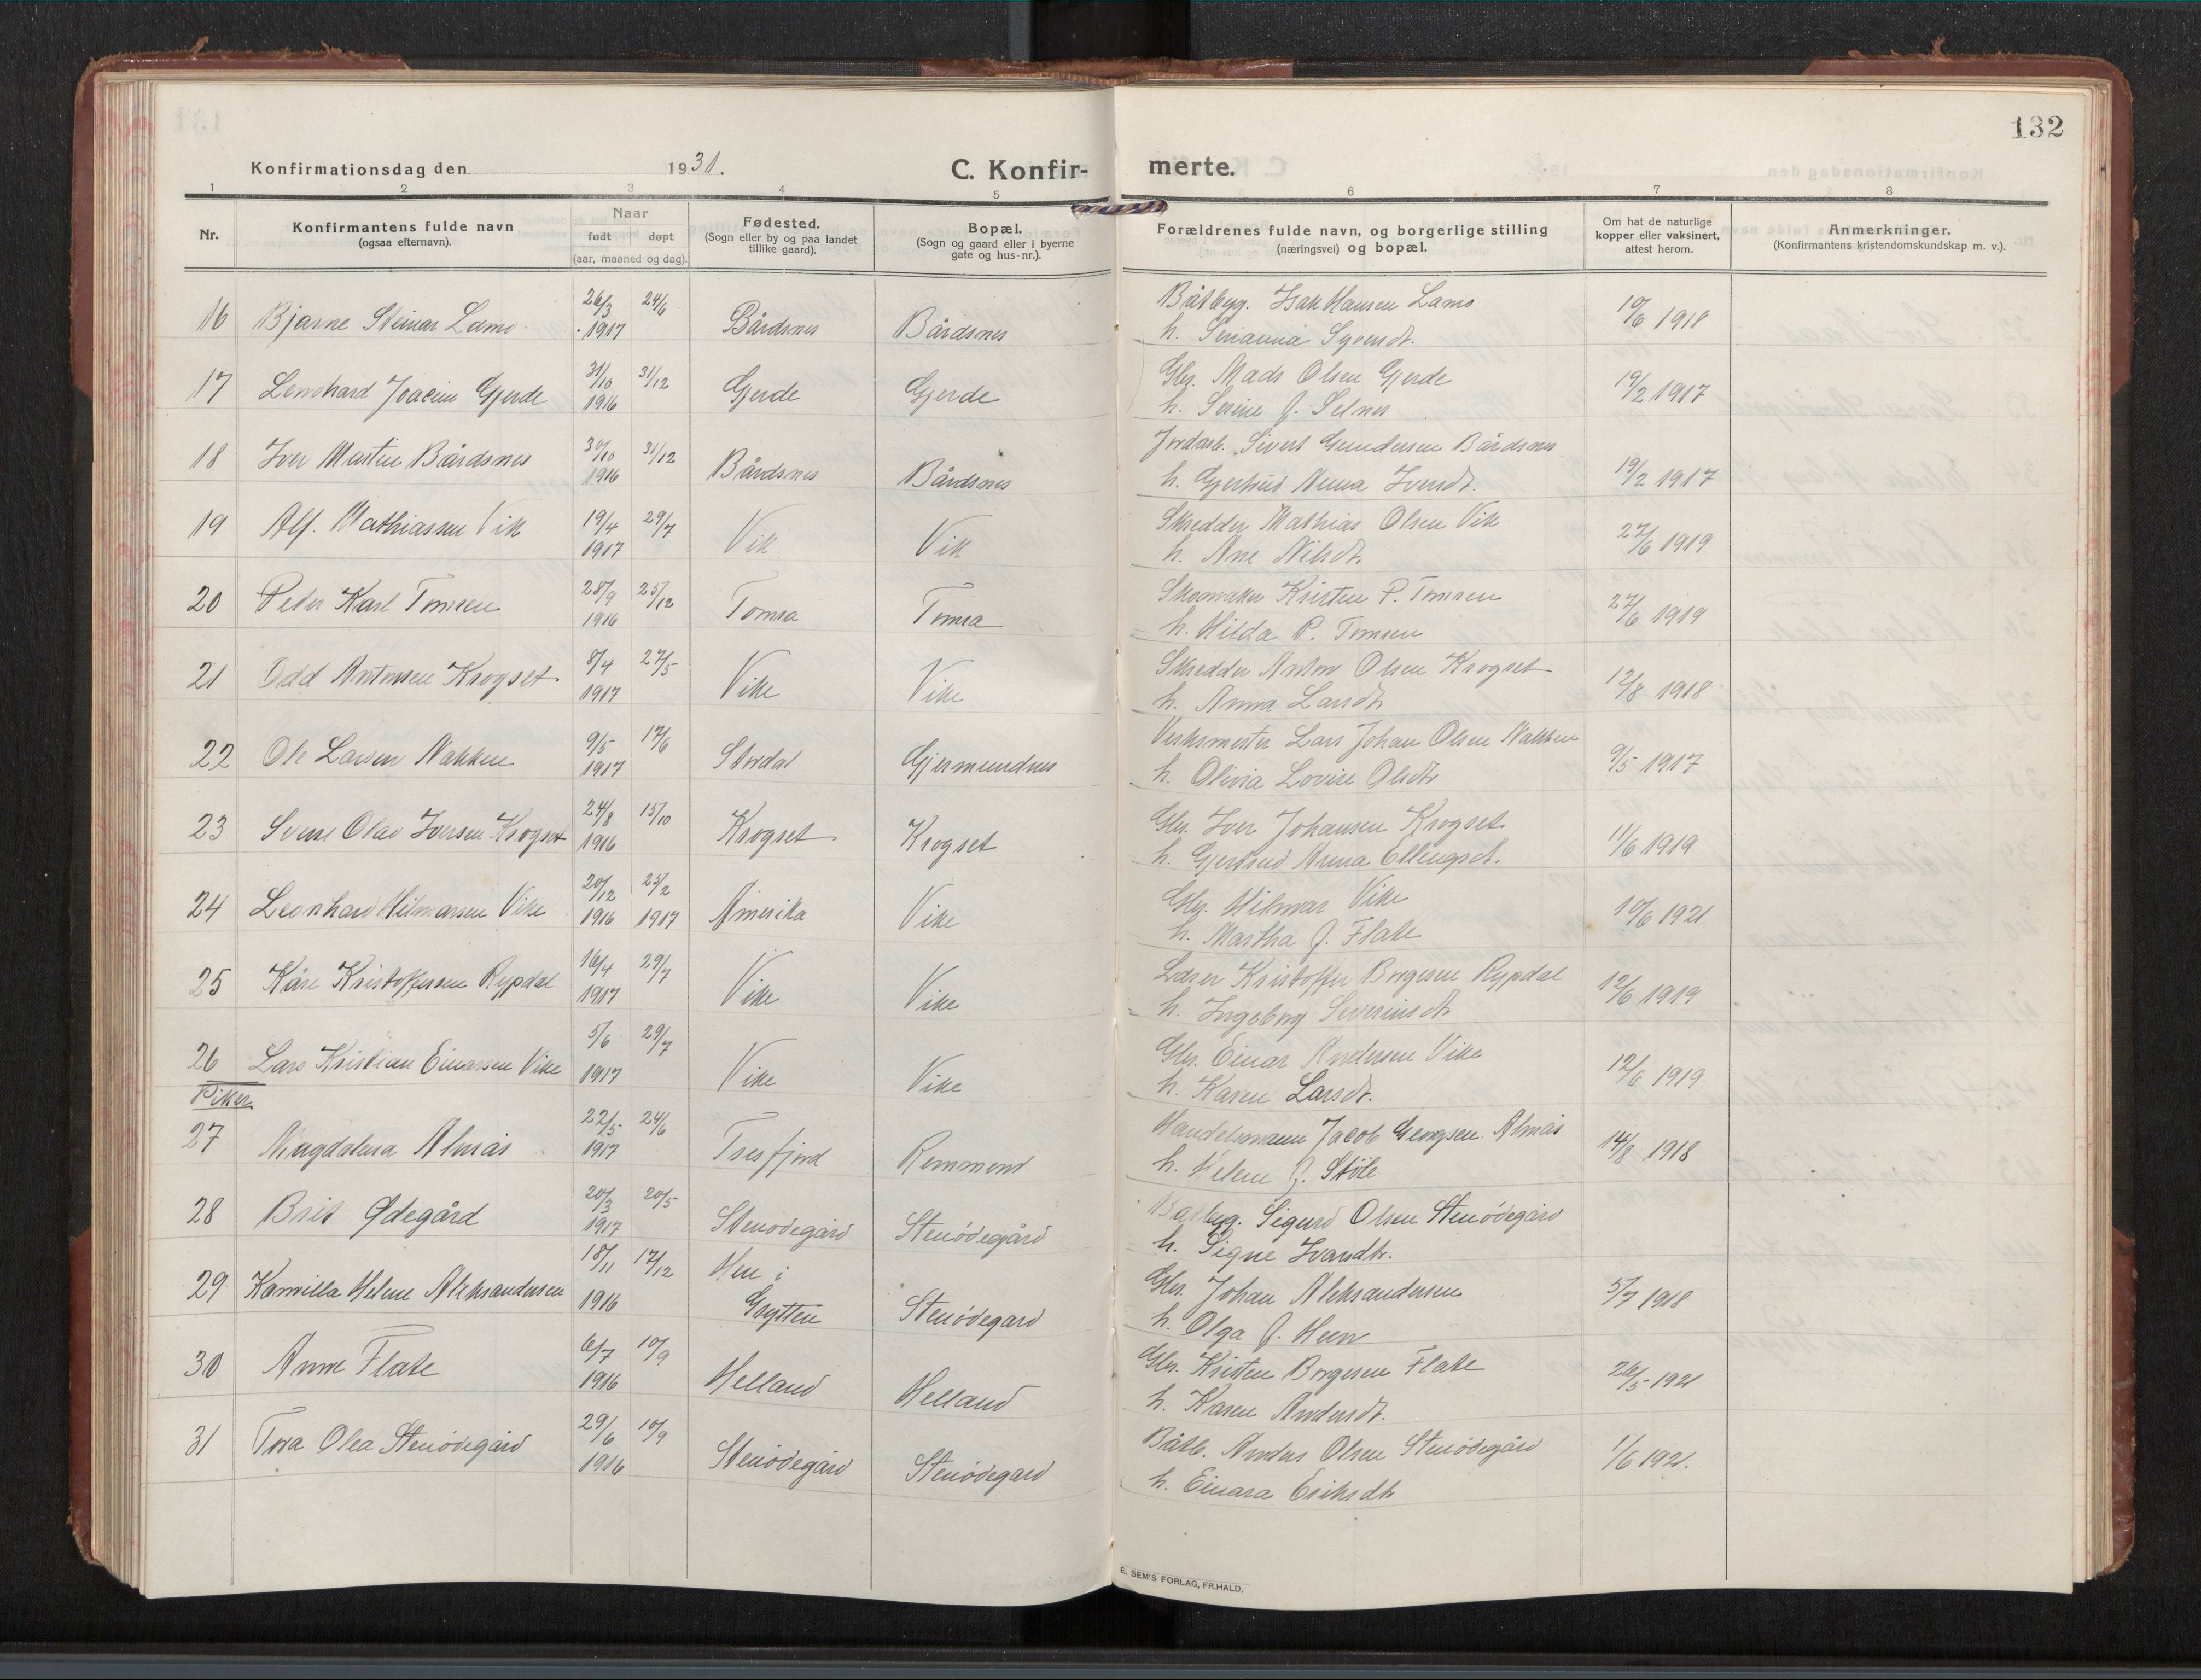 132
Konfirmationsdag den 1931. C. Konfirmerte.
1 2 3 4 5 6 7 8
Nr.
Konfirmantens fulde navn
(ogsaa efternavn).
Naar
født døpt
(aar, maaned og dag).
Fødested.
(Sogn eller by og paa landet
tillike gaard).
Bopæl.
(Sogn og gaard eller i byerne
gate og hus-nr.).
Forældrenes fulde navn, og borgerlige stilling
(næringsvei) og bopæl.
Om hat de naturlige
kopper eller vaksinert,
attest herom.
Anmerkninger.
(Konfirmantens kristendomskundskap m. v.).
16 Bjarne Steinar Lamo 26/3 24/6 Bårdsnes Bårdsnes Båtbyg. Isak Hansen Lamo 19/6 1918
1917 h. Serianna Syvendt.
17 Lennhard Joacim Gjerde 31/10 31/12 Gjerde Gjerde Gbr. Mads Olsen Gjerde 19/2 1917
1916 h. Serine J. Selnes
18 Iver Martin Bårdsnes 30/10 31/12 Bårdsnes Bårdsnes Jordarb. Sivert Gundersen Bårdsnes
1916 h. Gjertrud Anna Iversdt. 19/2 1917
19 Alf. Mathiassen Vik 19/4 29/7 Vik Vik Skredder Mathias Olsen Vik
1917 h. Ane Nilsdt. 27/6 1919
20 Peder Karl Tomren 28/9 25/12 Tomra Tomra Skomaker Kristen P. Tomren 27/6 1919
1916 h. Hilda P. Tomren
21 Odd Antonsen Krogset 8/4 27/5 Vike Vike Skredder Anton Olsen Krogset 12/8 1918
1917 h. Anna Larsdt
22 Ole Larsen Nakken 9/5 17/6 Stordal Gjermundnes Verksmester Lars Johan Olsen Nakken 9/5 1917
1917 h. Olivia Lovise Olsdtr
23 Sverre Olav Iversen Krogset 24/8 15/10 Krogset Krogset Gbr. Iver Johansen Krogset 11/6 1919
1916 h. Gjertrud Anna Ellingsdt.
24 Leonhard Hilmarsen Vike 20/12 25/2 Amerika Vike Gbr. Hilmar Vike 10/6 1921
1916 1917 h. Martha J. Flate
25 Kåre Kristoffersen Rypdal 16/4 29/7 Vike Vike Lærer Kristoffer Børgesen Rypdal 12/6 1919
1917 h. Ingeborg Severinsdt
26 Lars Kristian Einarsen Vike 5/6 29/7 Vike Vike Gbr. Einar Andersen Vike 12/6 1919
1917 h. Karen Larsdt.
Piker
27 Magdalena Almås 22/5 24/6 Tresfjord Remmem Handelsmann Jacob Georgsen Almås 14/8 1918
1917 h. Helene J. Støle
28 Brit Ødegård 20/3 20/5 Stenødegård Stenødegård Båtbyg. Sigurd Olsen Stenødegård
1917 h. Signe Ivarsdtr.
29 Kamilla Helene Aleksandersen 18/11 17/12 Hen i Stenødegard Gbr. Johan Aleksandersen 5/7 1918
1916 Grytten h. Olga J. Heen
30 Anne Flate 6/7 10/9 Helland Helland Gbr. Kristen Børgesen Flate 26/5 1921
1916 h. Karen Andersdt.
31 Tora Olea Stenødegård 29/6 10/9 Stenødegård Stenødegard Båtb. Anders Olsen Stenødegård 1/6 1921.
1916 h. Einara Eriksdtr
E. SEM'S FORLAG, FR.HALD.